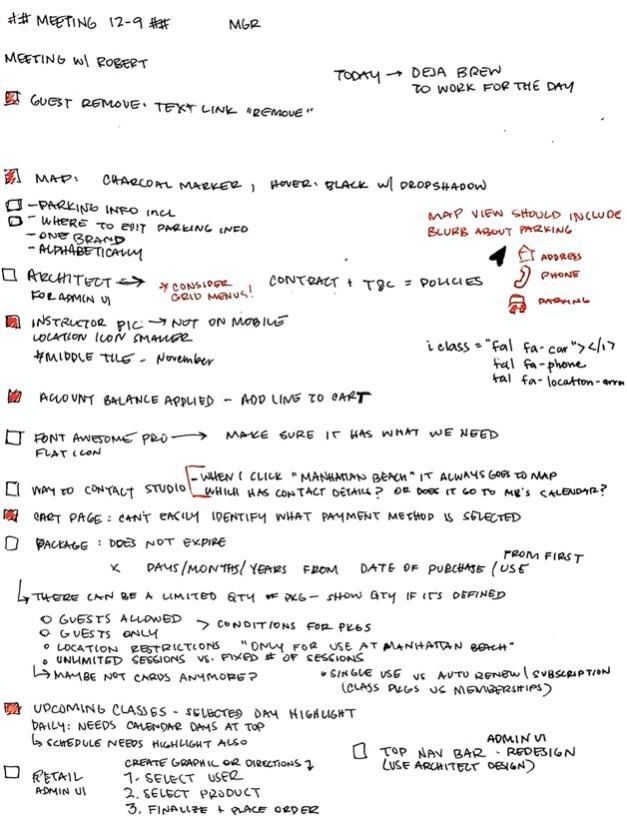 ## MEETING 12-9 ## MGR
MEETING W/ ROBERT
TODAY → DEJA BREW
TO WORK FOR THE DAY
GUEST REMOVE: TEXT LINK "REMOVE"
MAP: CHARCOAL MARKER, HOVER: BLACK W/ DROPSHADOW
- PARKING INFO INCL
- WHERE TO EDIT PARKING INFO
- ONE BRAND
- ALPHABETICALLY
MAP VIEW SHOULD INCLUDE
BLURB ABOUT PARKING
ADDRESS
PHONE
PARKING
ARCHITECT ↔ * CONSIDER CONTRACT + T&C = POLICIES
FOR ADMIN UI GRID MENUS!
INSTRUCTOR PIC → NOT ON MOBILE
LOCATION ICON SMALLER
# MIDDLE TILE - November
i class = "fal fa-car"></i>
fal fa-phone
fal fa-location-arrow
ACCOUNT BALANCE APPLIED - ADD LINE TO CART
FONT AWESOME PRO → MAKE SURE IT HAS WHAT WE NEED
FLAT ICON
WAY TO CONTACT STUDIO - WHEN I CLICK "MANHATTAN BEACH" IT ALWAYS GOES TO MAP
WHICH HAS CONTACT DETAILS? OR DOES IT GO TO MB'S CALENDAR?
CART PAGE: CAN'T EASILY IDENTIFY WHAT PAYMENT METHOD IS SELECTED
PACKAGE: DOES NOT EXPIRE
X DAYS/MONTHS/YEARS FROM DATE OF PURCHASE / FROM FIRST USE
↳ THERE CAN BE A LIMITED QTY OF PKG - SHOW QTY IF IT'S DEFINED
○ GUESTS ALLOWED > CONDITIONS FOR PKGS
○ GUESTS ONLY
○ LOCATION RESTRICTIONS "ONLY FOR USE AT MANHATTAN BEACH"
○ UNLIMITED SESSIONS VS. FIXED # OF SESSIONS
↳ MAYBE NOT CARDS ANYMORE?
• SINGLE USE VS AUTO RENEW / SUBSCRIPTION
(CLASS PKGS VS MEMBERSHIPS)
UPCOMING CLASSES - SELECTED DAY HIGHLIGHT
DAILY: NEEDS CALENDAR DAYS AT TOP
↳ SCHEDULE NEEDS HIGHLIGHT ALSO
ADMIN UI
TOP NAV BAR - REDESIGN
(USE ARCHITECT DESIGN)
RETAIL CREATE GRAPHIC OR DIRECTIONS ↴
ADMIN UI 1. SELECT USER
2. SELECT PRODUCT
3. FINALIZE + PLACE ORDER